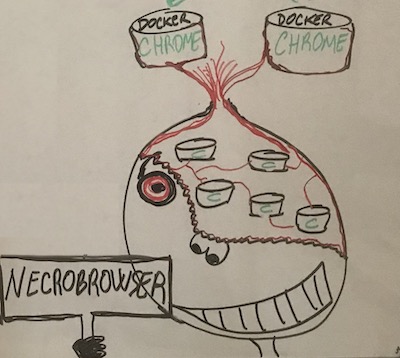 DOCKER
CHROME
DOCKER
CHROME
C
C
C
C
C
NECROBROWSER